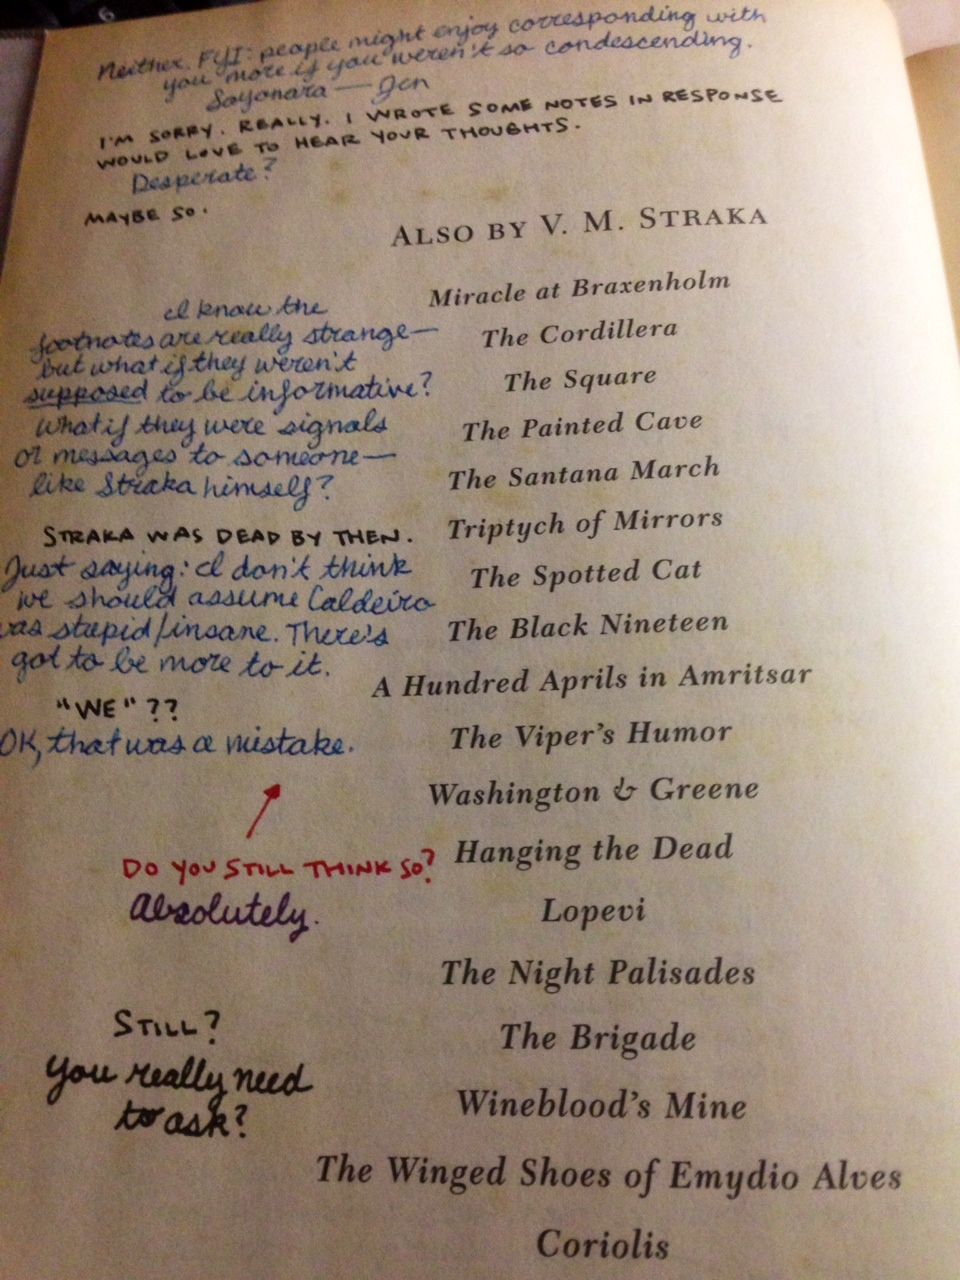 Neither. FYI: people might enjoy corresponding with
you more if you weren't so condescending.
Sayonara — Jen
I'M SORRY. REALLY. I WROTE SOME NOTES IN RESPONSE
WOULD LOVE TO HEAR YOUR THOUGHTS.
Desperate?
MAYBE SO.
ALSO BY V. M. STRAKA
Miracle at Braxenholm
The Cordillera
The Square
The Painted Cave
The Santana March
Triptych of Mirrors
The Spotted Cat
The Black Nineteen
A Hundred Aprils in Amritsar
The Viper's Humor
Washington & Greene
Hanging the Dead
Lopevi
The Night Palisades
The Brigade
Wineblood's Mine
The Winged Shoes of Emydio Alves
Coriolis
I know the
footnotes are really strange—
but what if they weren't
supposed to be informative?
What if they were signals
or messages to someone—
like Straka himself?
STRAKA WAS DEAD BY THEN.
Just saying: I don't think
we should assume Caldeira
was stupid/insane. There's
got to be more to it.
"WE"??
OK, that was a mistake.
DO YOU STILL THINK SO?
Absolutely.
STILL?
You really need
to ask?